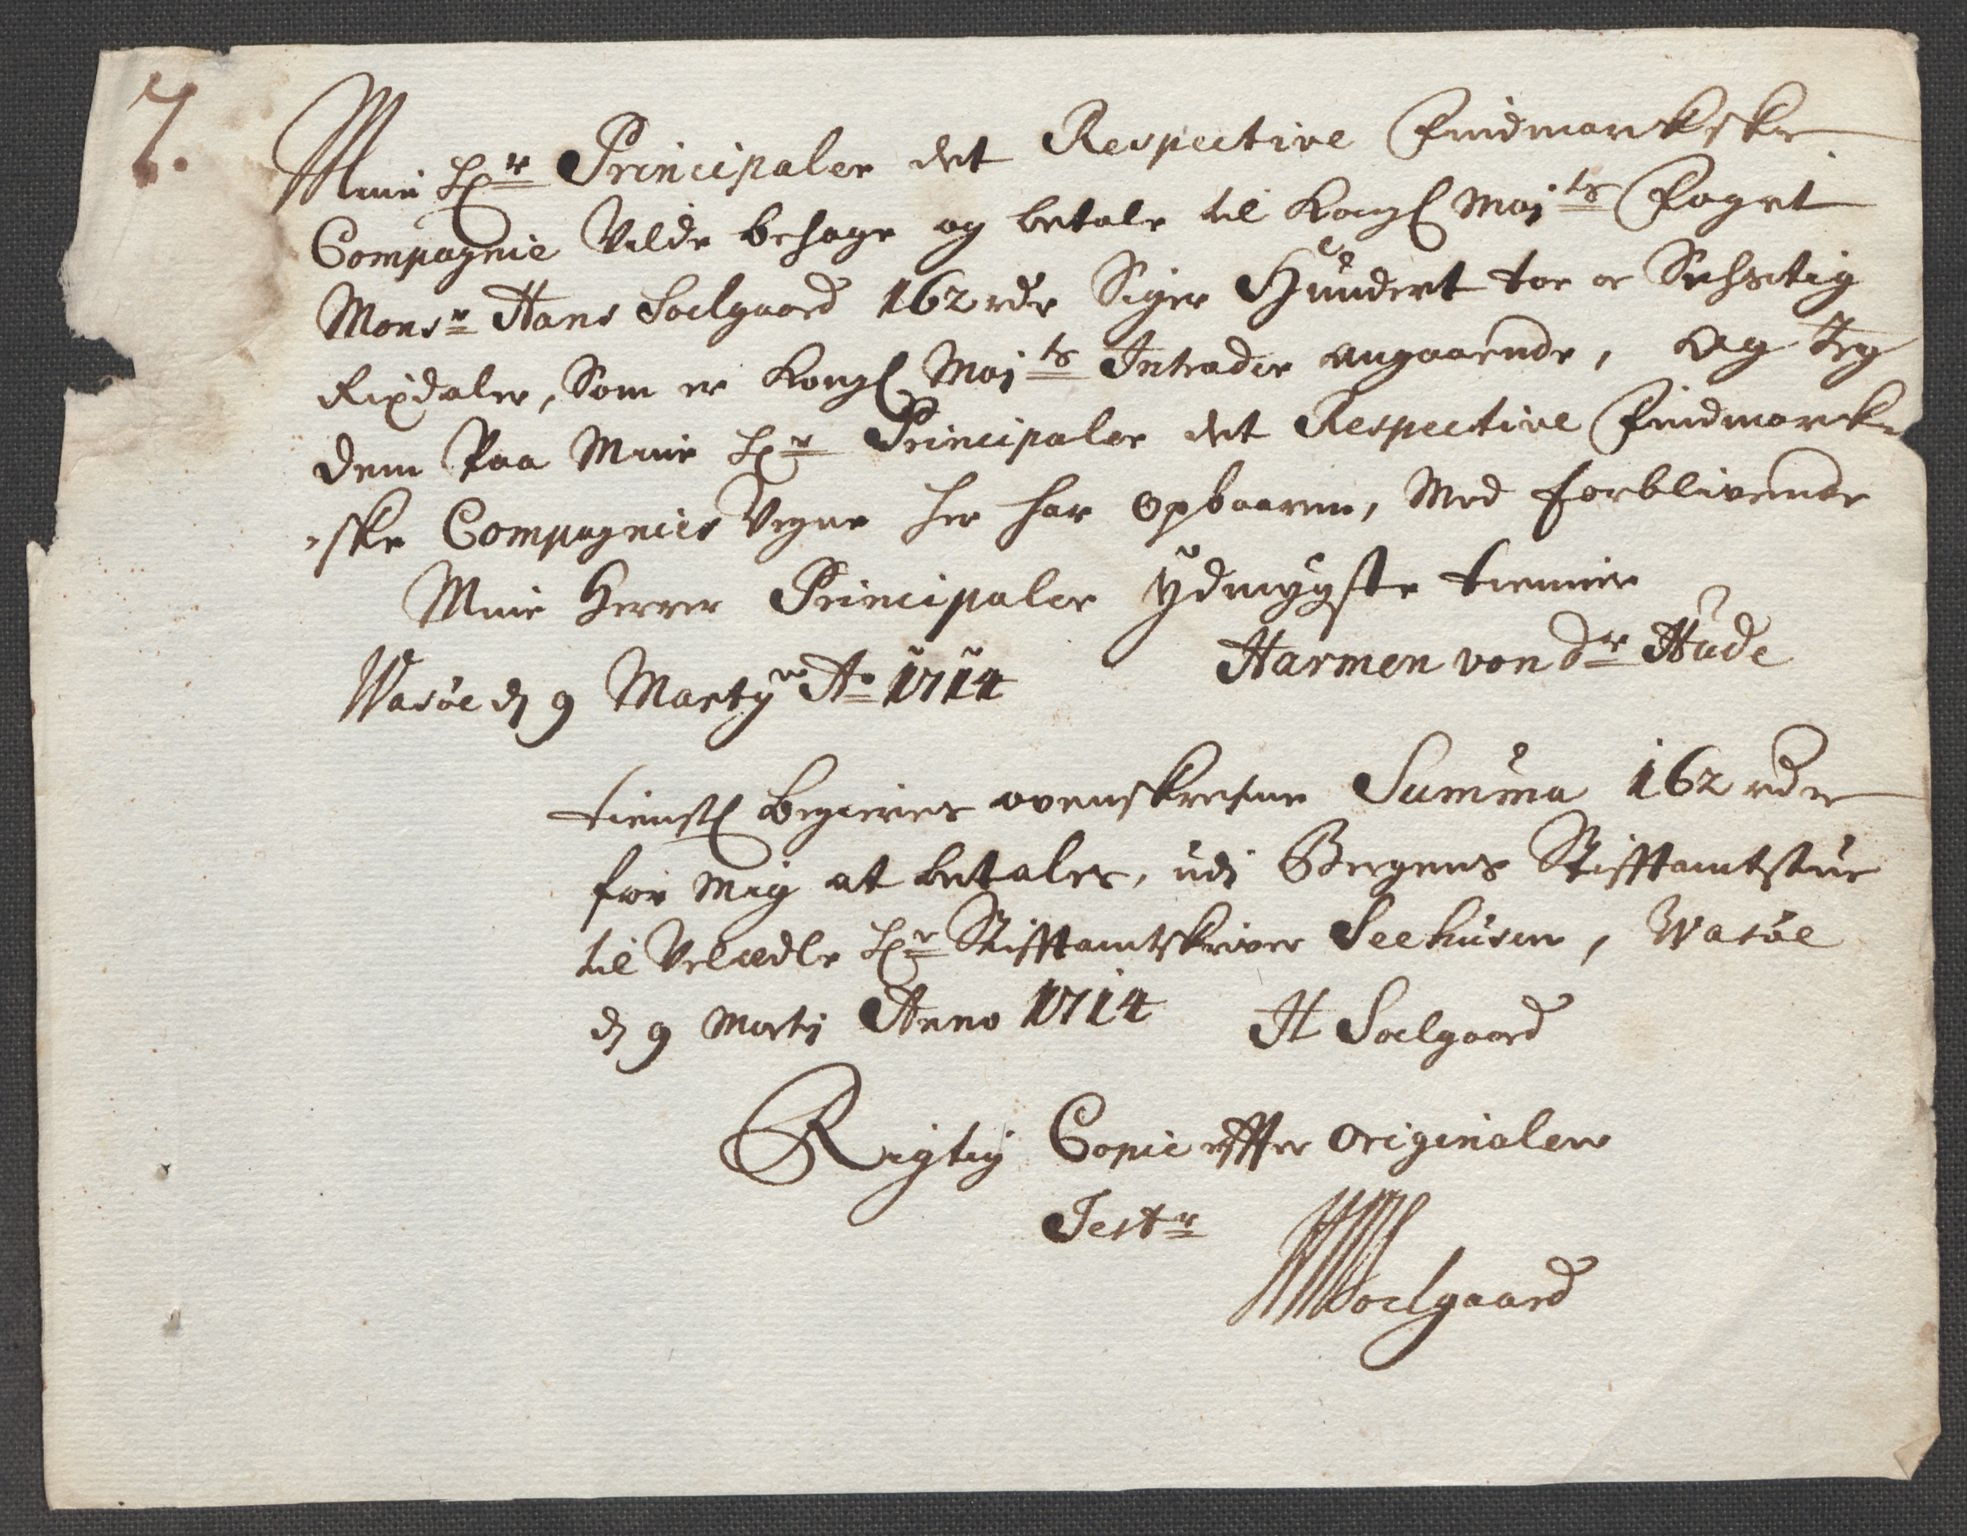 7.
Mine Hr Principaler det Respective Findmarkske
Compagnie Vilde behage og betale til Kongl Mayts Foget
Monsr Hans Soelgaard 162 rdr Siger Hundert toe oc Sechstig
Rixdaler, Som er Kongl Mayts Intrader angaaende, Og Jeg
dem Paa Mine Hr Principaler det Respective Findmarck-
-ske Compagnies Vegne her har opbaaren, Med forblivende
Mine Herrer Principaler ÿdmygste tienner
Harmen von dr Hude
Wasöe d 9 Marty Ao 1714
tienstl Begieris ovenskrefne Summa 162 rdr
for Mig at betales, udj Bergens Stifftamtstue
til Velædle Hr Stifftamtskriver Seehusen, Wasöe
d 9 Martj Anno 1714 H Soelgaard
Rigtig Copie effter originalen
Testr
Soelgaard